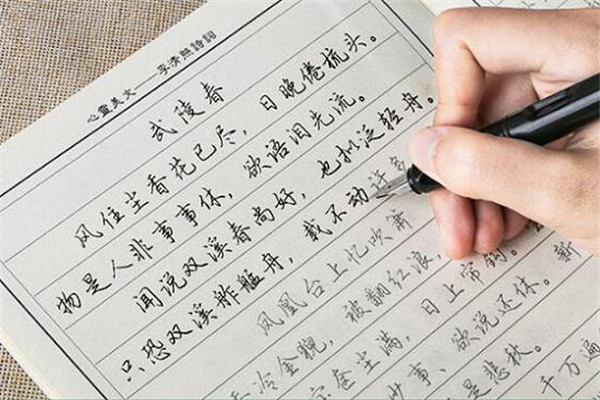 心靈美文 — 李清照詩詞
武陵春
风住尘香花已尽，日晚倦梳头。
物是人非事事休，欲语泪先流。
闻说双溪春尚好，也拟泛轻舟。
只恐双溪舴艋舟，载不动许多
凤凰台上忆吹箫
冷金，被翻红浪，
奁尘满，日上帘钩。
事、欲说还休。新
是悲秋。
千万遍